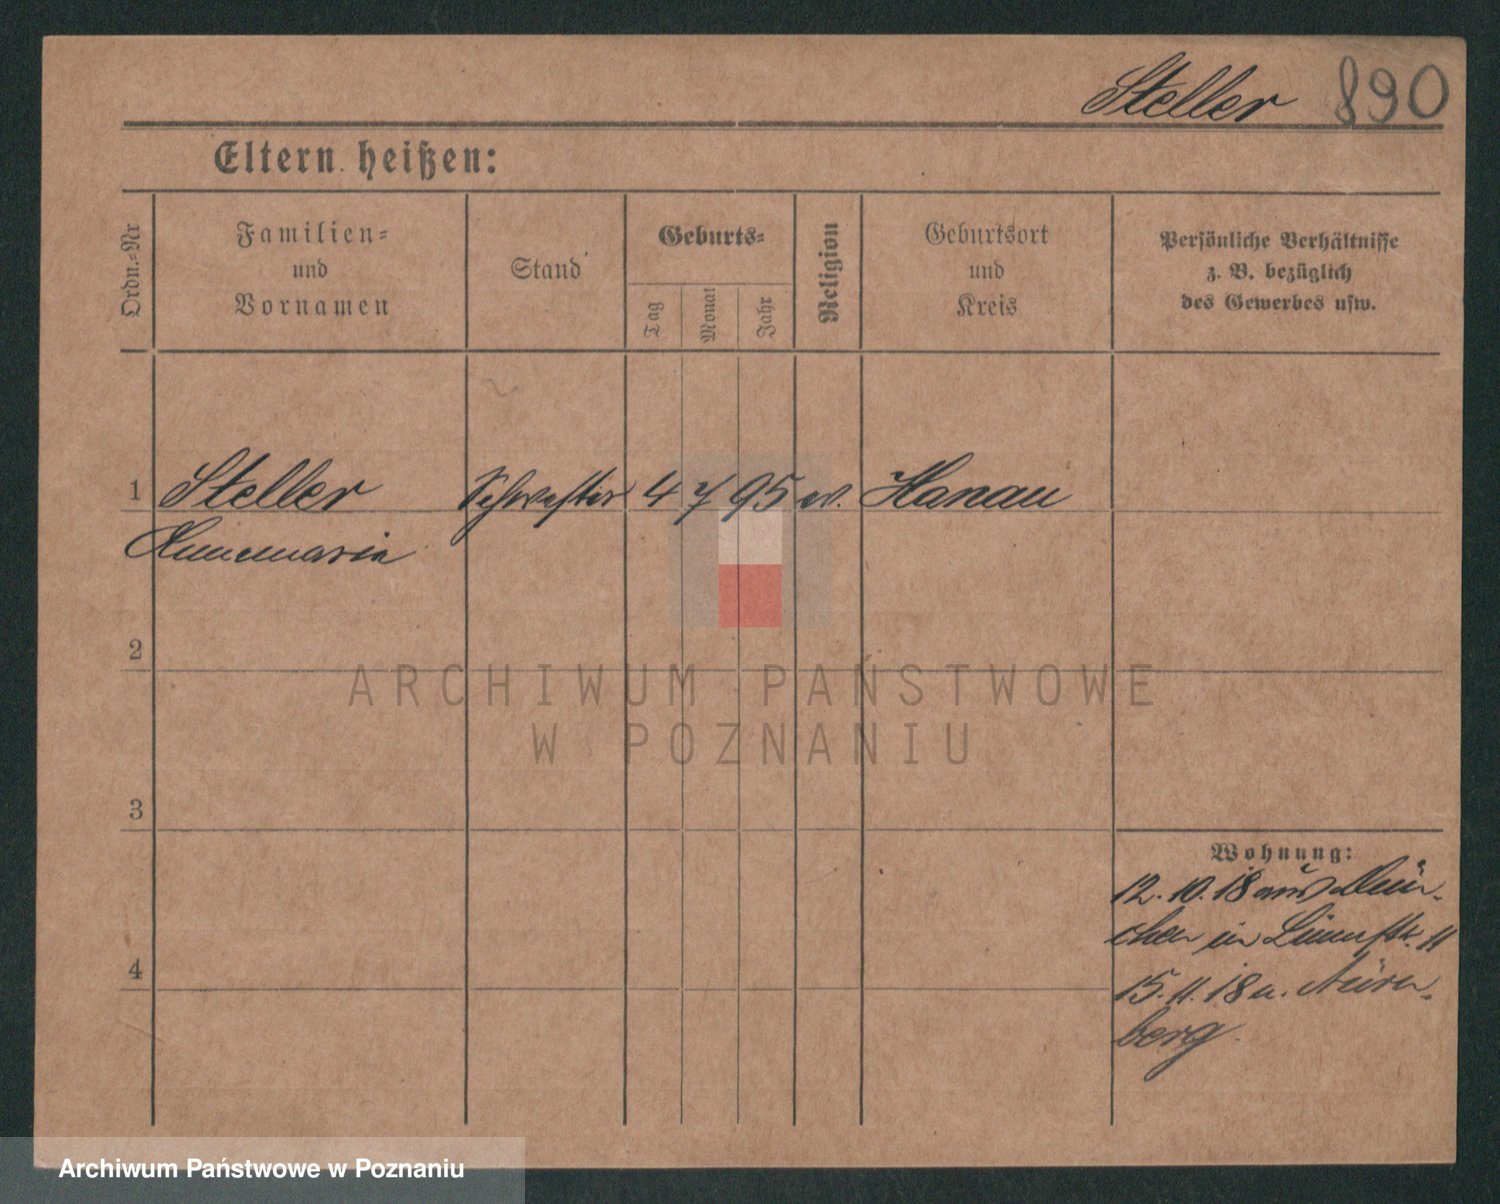 Steller 890
Eltern heißen:
Ordn.-Nr
Familien-
und
Vornamen
Stand
Geburts-
Tag
Monat
Jahr
Religion
Geburtsort
und
Kreis
Persönliche Verhältnisse
z. B. bezüglich
des Gewerbes usw.
1 Steller Schwester 4 7 95 ev. Hanau
Annemarie
2
ARCHIWUM PAŃSTWOWE
W POZNANIU
3
Wohnung:
12. 10. 18 aus Mün-
chen in 11
4
15. 11. 18 n. Nürn-
berg.
Archiwum Państwowe w Poznaniu